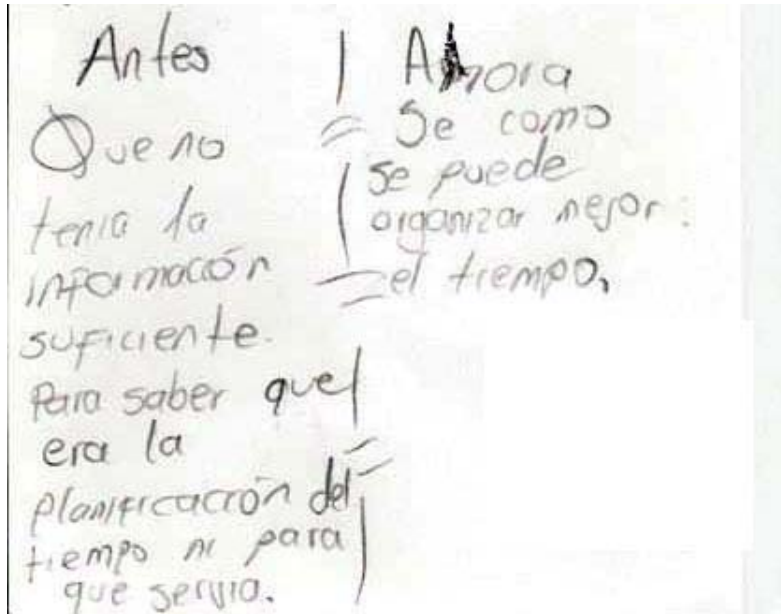 Antes
Que no
tenia la
información
suficiente.
Para saber que
era la
planificación del
tiempo ni para
que servia.
Ahora
Se como
se puede
organizar mejor
el tiempo.